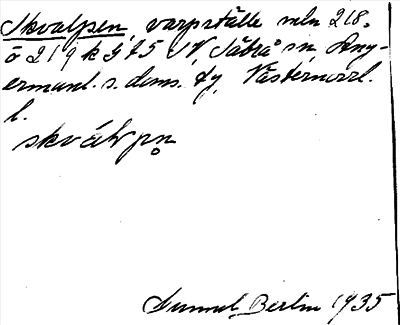 Skvalpen, varpställe mln 218.
o 219 k G 15 SV, Säbrå sn, Ång-
ermanl. s. doms. tg. Västernorrl.
l.
skvàlpn̥
Gunnel Berlin 1935